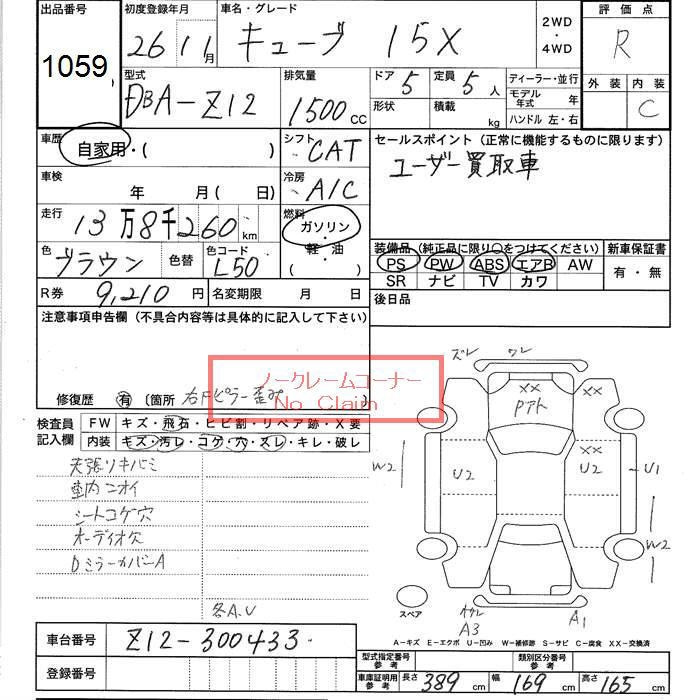 出品番号 1059
初度登録年月 26 11月
車名・グレード キューブ 15X
2WD・4WD
評価点 R
外装 内装 C
型式 DBA-Z12
排気量 1500 CC
ドア 5 定員 5人
形状 積載 kg
ディーラー・並行
モデル年式 年
ハンドル 左・右
車歴 自家用・( )
シフト CAT
セールスポイント (正常に機能するものに限ります)
ユーザー買取車
車検 年 月(日)
冷房 A/C
走行 13万8千260km
燃料 ガソリン・軽・油 ( )
色 ブラウン 色替 色コード L50
装備品 (純正品に限り○をつけてください) 新車保証書
PS PW ABS エアB AW 有・無
SR ナビ TV カワ
R券 9,210円 名変期限 月 日
後日品
注意事項申告欄 (不具合内容等は具体的に記入して下さい)
ノークレームコーナー
No Claim
修復歴 有 〔箇所 右Fピラー歪み
検査員記入欄
FW キズ・飛石・ヒビ割・リペア跡・X要
内装 キズ・汚レ・コゲ・穴・スレ・キレ・破レ
天張リキバミ
車内ニオイ
シートコゲ穴
オーディオ穴
DミラーカバーA
各A.U
ズレ ワレ
XX XX
Pアト
XX
W2 U2 U2 U1
W2
スペア
A3 A1
A-キズ E-エクボ U-凹み W-補修跡 S-サビ C-腐食 XX-交換済
車台番号 Z12-300433
登録番号
型式指定番号 参考 類別区分番号 参考
車庫証明用 参考 長さ 389cm 幅 169cm 高さ 165cm